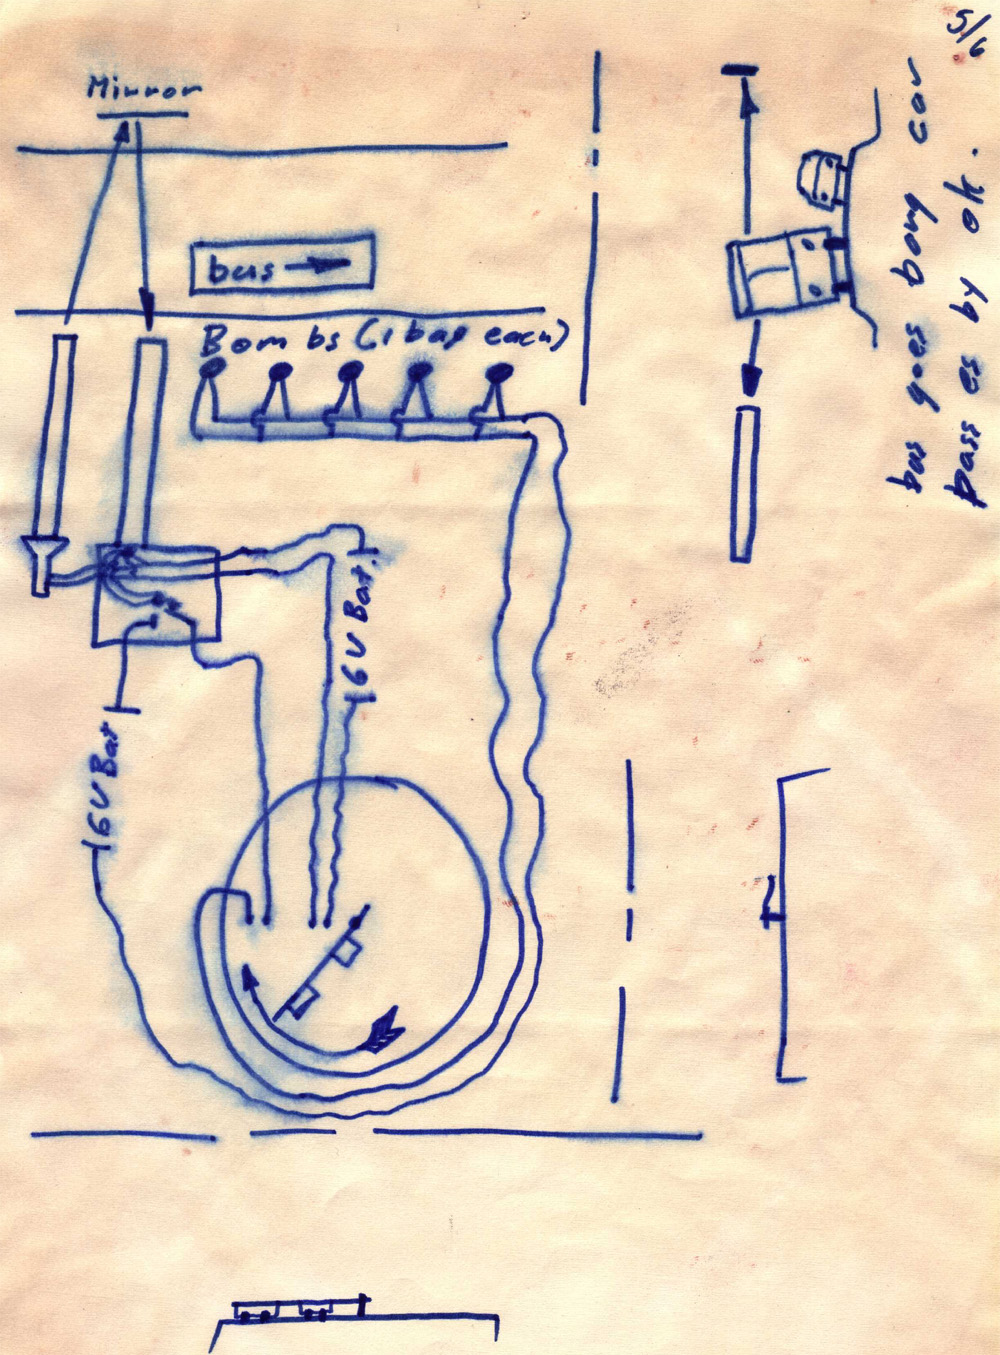 5/6
Mirror
bus
Bombs (1 bag each)
6V Bat.
6V Bat
bus goes bong car
pass es by ok.